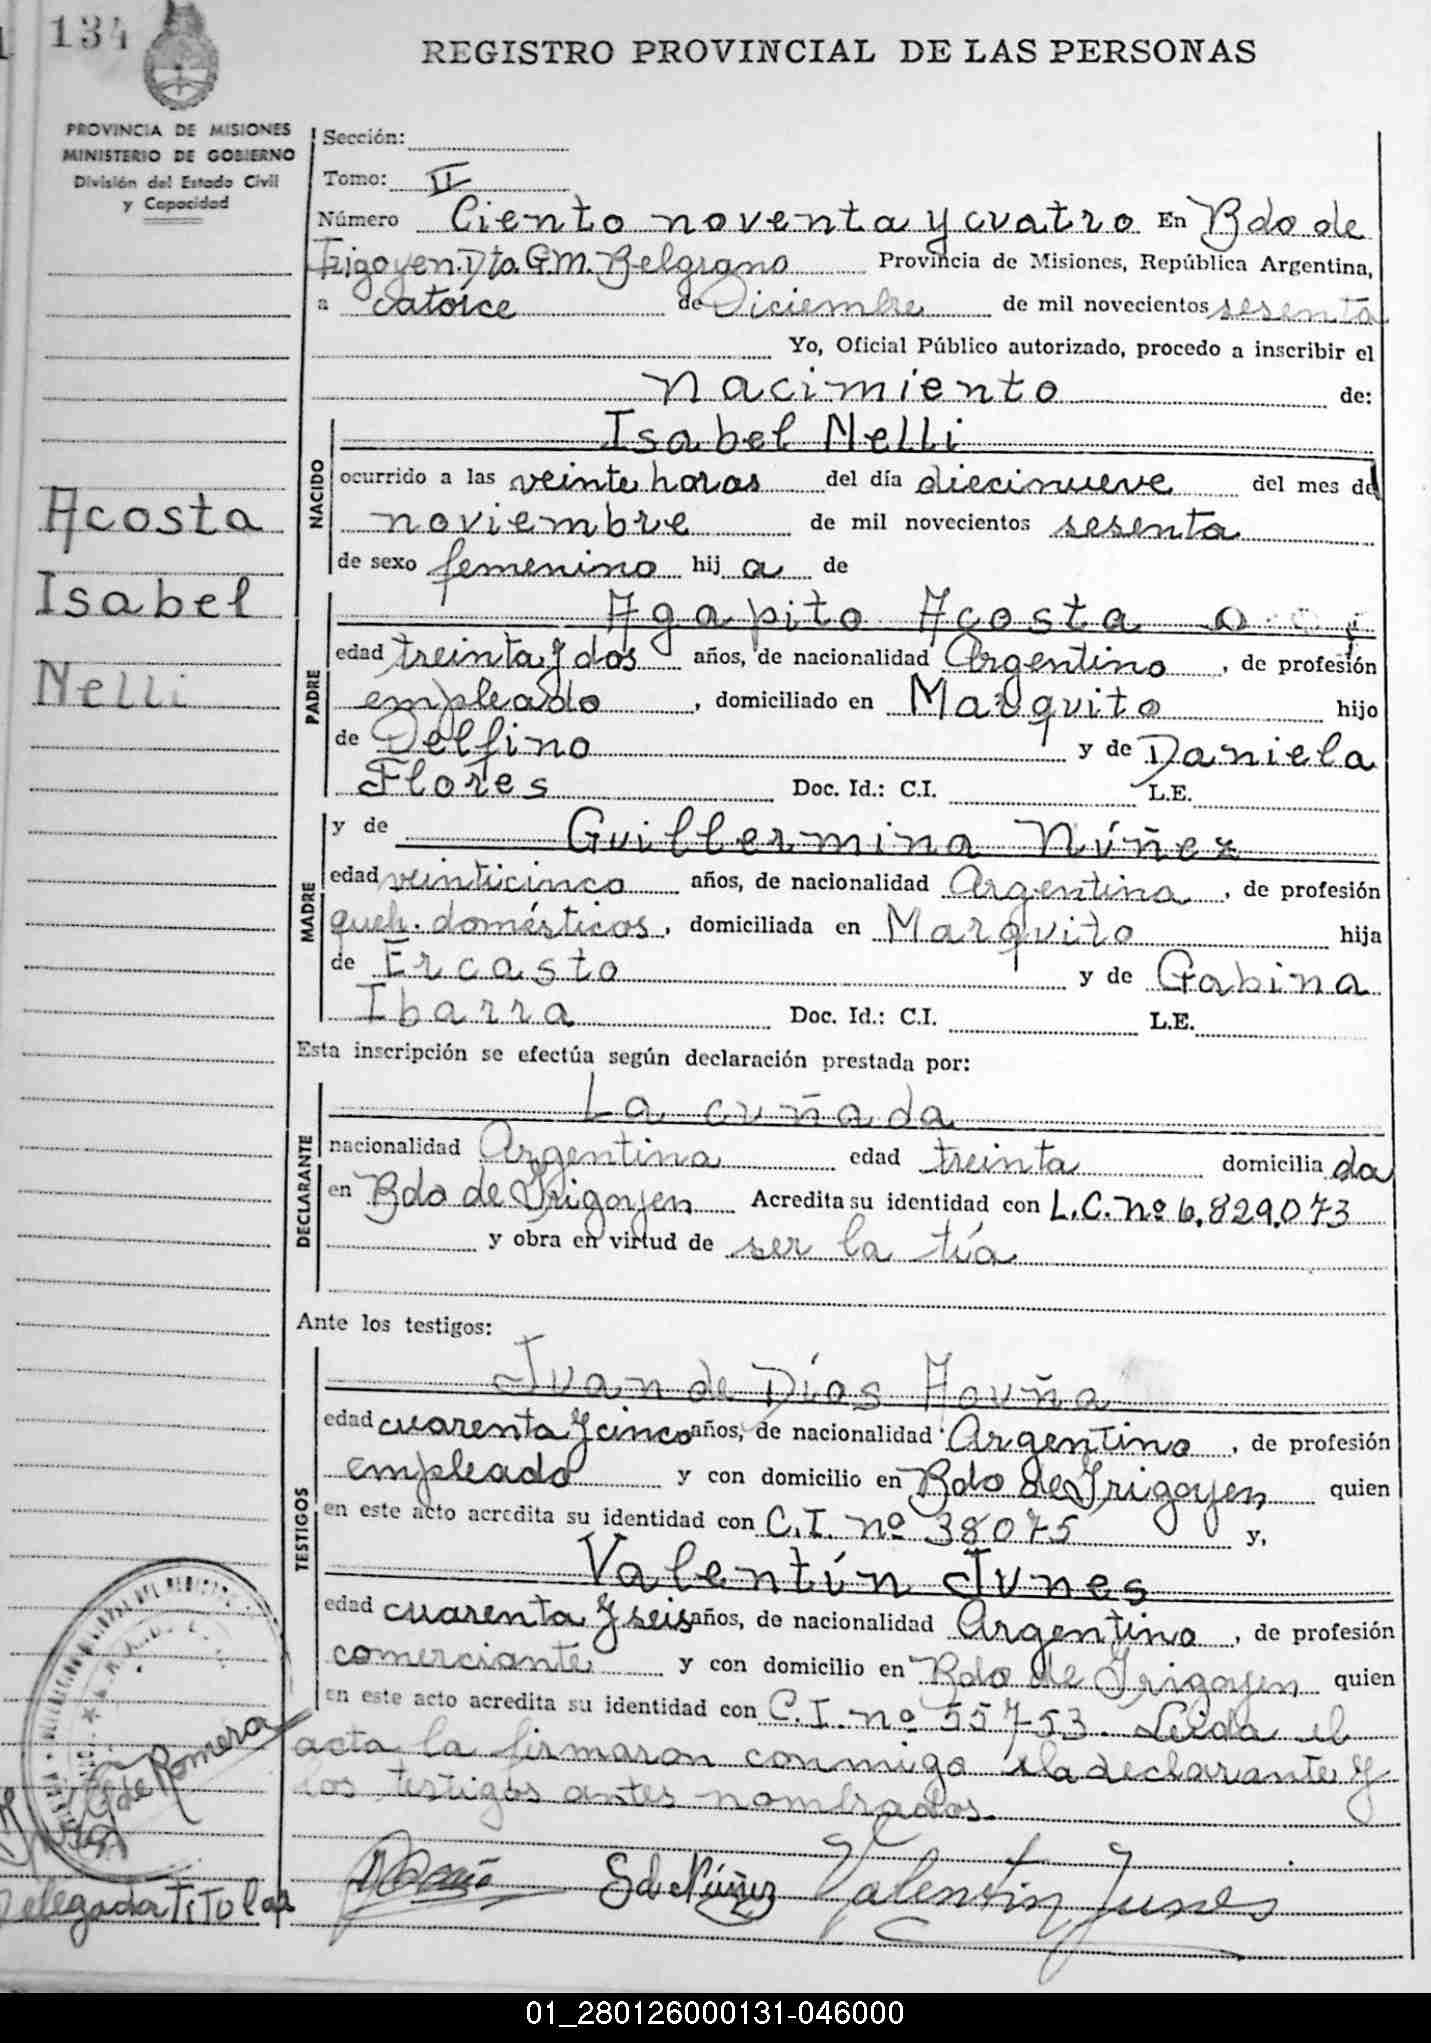 134
REGISTRO PROVINCIAL DE LAS PERSONAS
PROVINCIA DE MISIONES
MINISTERIO DE GOBIERNO
División del Estado Civil
y Capacidad
Sección:
Tomo: II
Número Ciento noventa y cuatro En Bdo de
Irigoyen. Dto. G.M. Belgrano Provincia de Misiones, República Argentina,
a catorce de Diciembre de mil novecientos sesenta
Yo, Oficial Público autorizado, procedo a inscribir el
Nacimiento de:
Acosta
Isabel
Nelli
NACIDO
Isabel Nelli
ocurrido a las veinte horas del día diecinueve del mes de
noviembre de mil novecientos sesenta
de sexo femenino hij a de
PADRE
Agapito Acosta
edad treinta y dos años, de nacionalidad Argentino, de profesión
empleado, domiciliado en Marquito hijo
de Delfino y de Daniela
Flores Doc. Id.: C.I. L.E.
MADRE
y de Guillermina Núñez
edad veinticinco años, de nacionalidad Argentina, de profesión
queh. domésticos, domiciliada en Marquito hija
de Ercasto y de Gabina
Ibarra Doc. Id.: C.I. L.E.
Esta inscripción se efectúa según declaración prestada por:
DECLARANTE
La cuñada
nacionalidad Argentina edad treinta domicilia da
en Bdo de Irigoyen Acredita su identidad con L.C. Nº 6.829.073
y obra en virtud de ser la tía
Ante los testigos:
TESTIGOS
Juan de Dios
edad cuarenta y cinco años, de nacionalidad Argentino, de profesión
empleado y con domicilio en Bdo de Irigoyen quien
en este acto acredita su identidad con C.I. nº 38075 y,
Valentín Junes
edad cuarenta y seis años, de nacionalidad Argentino, de profesión
comerciante y con domicilio en Bdo de Irigoyen quien
en este acto acredita su identidad con C.I. nº 55753. Leida el
acta la firmaron conmigo la declarante y
los testigos antes nombrados.
de Romera
Delegada Titular
S de Núñez
Valentin Junes
01_280126000131-046000